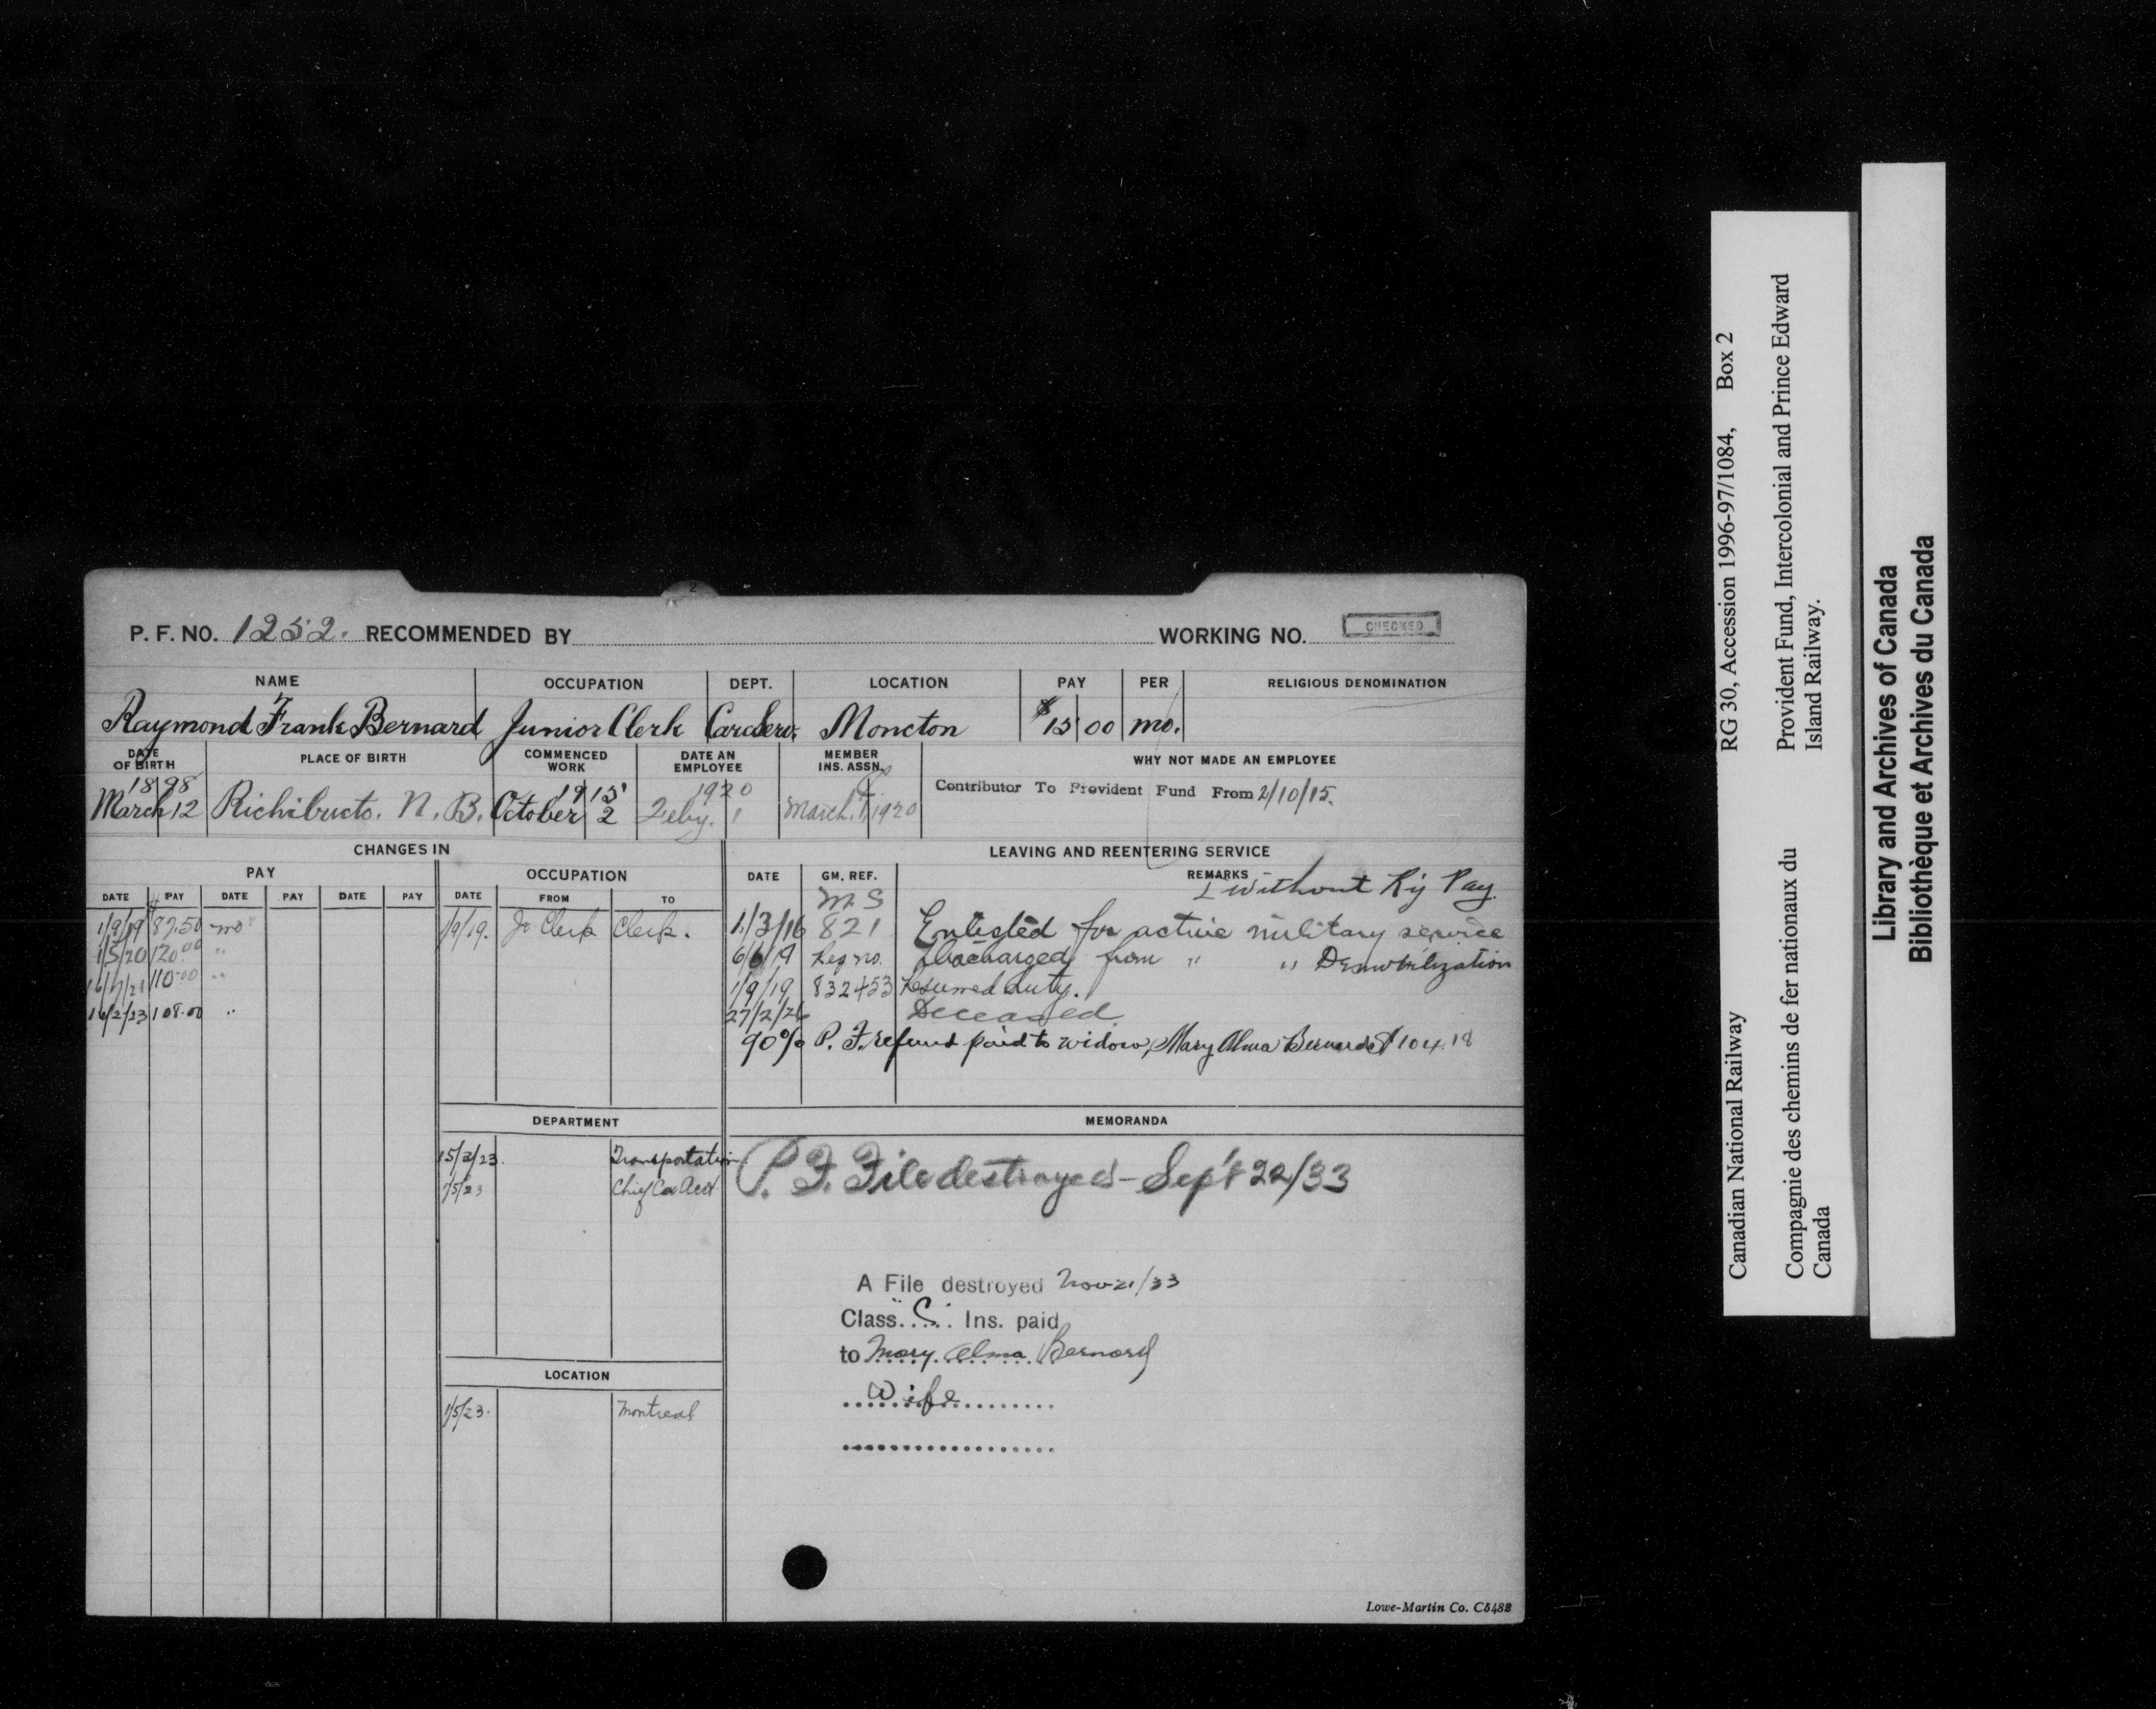 2
P. F. NO. 1252. RECOMMENDED BY WORKING NO. CHECKED
NAME OCCUPATION DEPT. LOCATION PAY PER RELIGIOUS DENOMINATION
Raymond Frank Bernard Junior Clerk Car Serv. Moncton $15 00 mo.
DATE OF BIRTH PLACE OF BIRTH COMMENCED WORK DATE AN EMPLOYEE MEMBER INS. ASSN. WHY NOT MADE AN EMPLOYEE
1898 1915 1920 Contributor To Provident Fund From 2/10/15.
March 12 Richibucto. N. B. October 2 Feby. 1 March. 1, 1920
CHANGES IN LEAVING AND REENTERING SERVICE
PAY OCCUPATION DATE GM. REF. REMARKS
DATE PAY DATE PAY DATE PAY DATE FROM TO
M. S. without Ry Pay
1/9/19 $87.50 mo 1/9/19. Jr Clerk Clerk. 1/3/16 821 Enlisted for active military service
1/5/20 120.00 " 6/6/19 Reg no. Discharged from " " Demobilization
16/7/21 110.00 " 1/9/19 832453 Resumed duty.
16/2/23 108.00 " 27/2/26 Deceased
90% P. F. refund paid to widow, Mary Alma Bernard $104.18
DEPARTMENT MEMORANDA
15/2/23. Transportation
1/5/23 Chief Car Acct
P. F. File destroyed - Sep't 22/33
A File destroyed Nov 21/33
Class "C" Ins. paid
to Mary Alma Bernard
Wife
LOCATION
1/5/23. Montreal
Lowe-Martin Co. C5482
Canadian National Railway RG 30, Accession 1996-97/1084, Box 2
Compagnie des chemins de fer nationaux du Provident Fund, Intercolonial and Prince Edward
Canada Island Railway.
Library and Archives of Canada
Bibliothèque et Archives du Canada